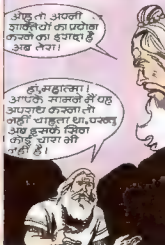 ओह तो अपनी
शक्तियों का प्रयोग
करने का इरादा है
अब तेरा!
हां, महात्मा!
आपके सामने में यह
अपराध करना तो
नहीं चाहता था, परन्तु
अब इसके सिवा
कोई चारा भी
नहीं है!